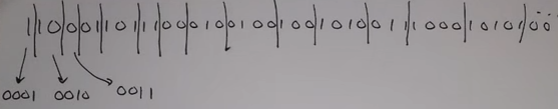 1|10|0011|01|1|00|010|0100|100|1010|011|1000|10101|00
0001 0010 0011